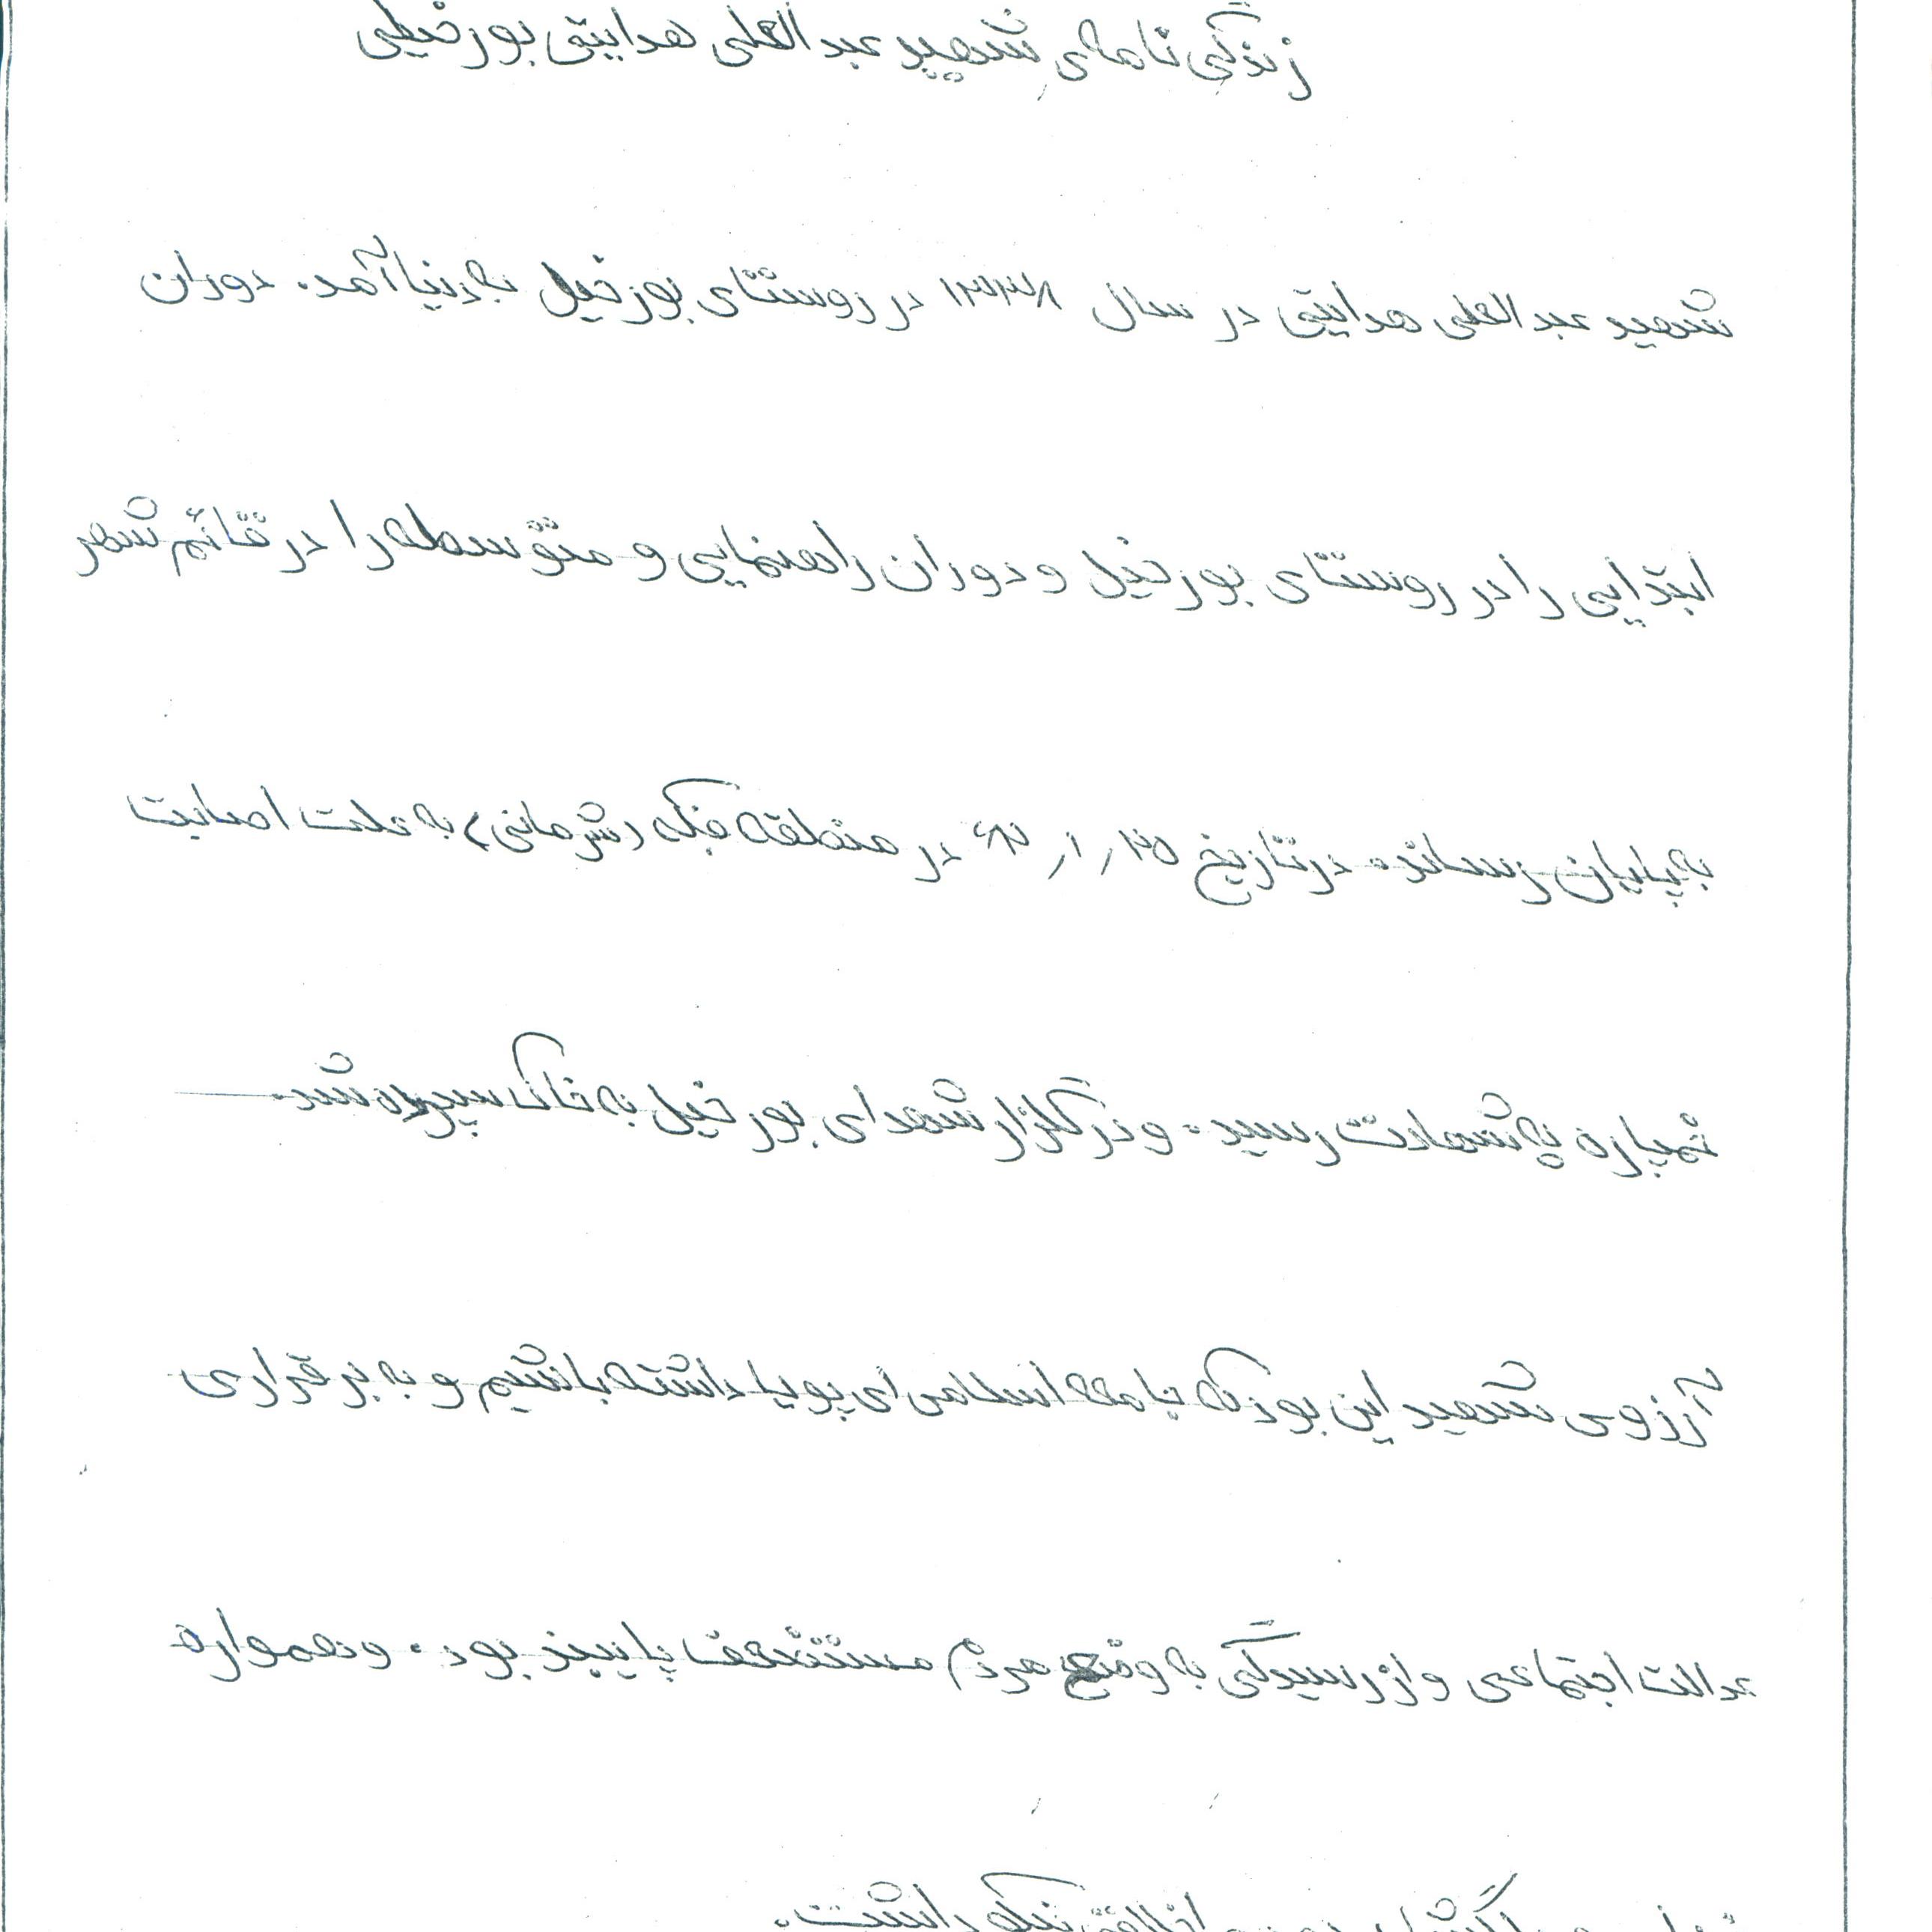 زندگی نامه‌ی شهید عبدالعلی هدایتی بورخیلی
شهید عبدالعلی هدایتی در سال ۱۳۳۸ در روستای بورخیل به دنیا آمد. دوران
ابتدایی را در روستای بورخیل و دوران راهنمایی و متوسطه را در قائم شهر
به پایان رساند. در تاریخ ۲۵ ر ۱ ر ۶۲ در منطقه فکه (شرهانی) به علت اصابت
خمپاره به شهادت رسید. و در گلزار شهدای بورخیل به خاک سپرده شد.
آرزوی شهید این بود که جامعه اسلامی ای پویا داشته باشیم و به برقراری
عدالت اجتماعی و از رسیدگی به وضع مردم مستضعف پایبند بود. و همواره
داشت.